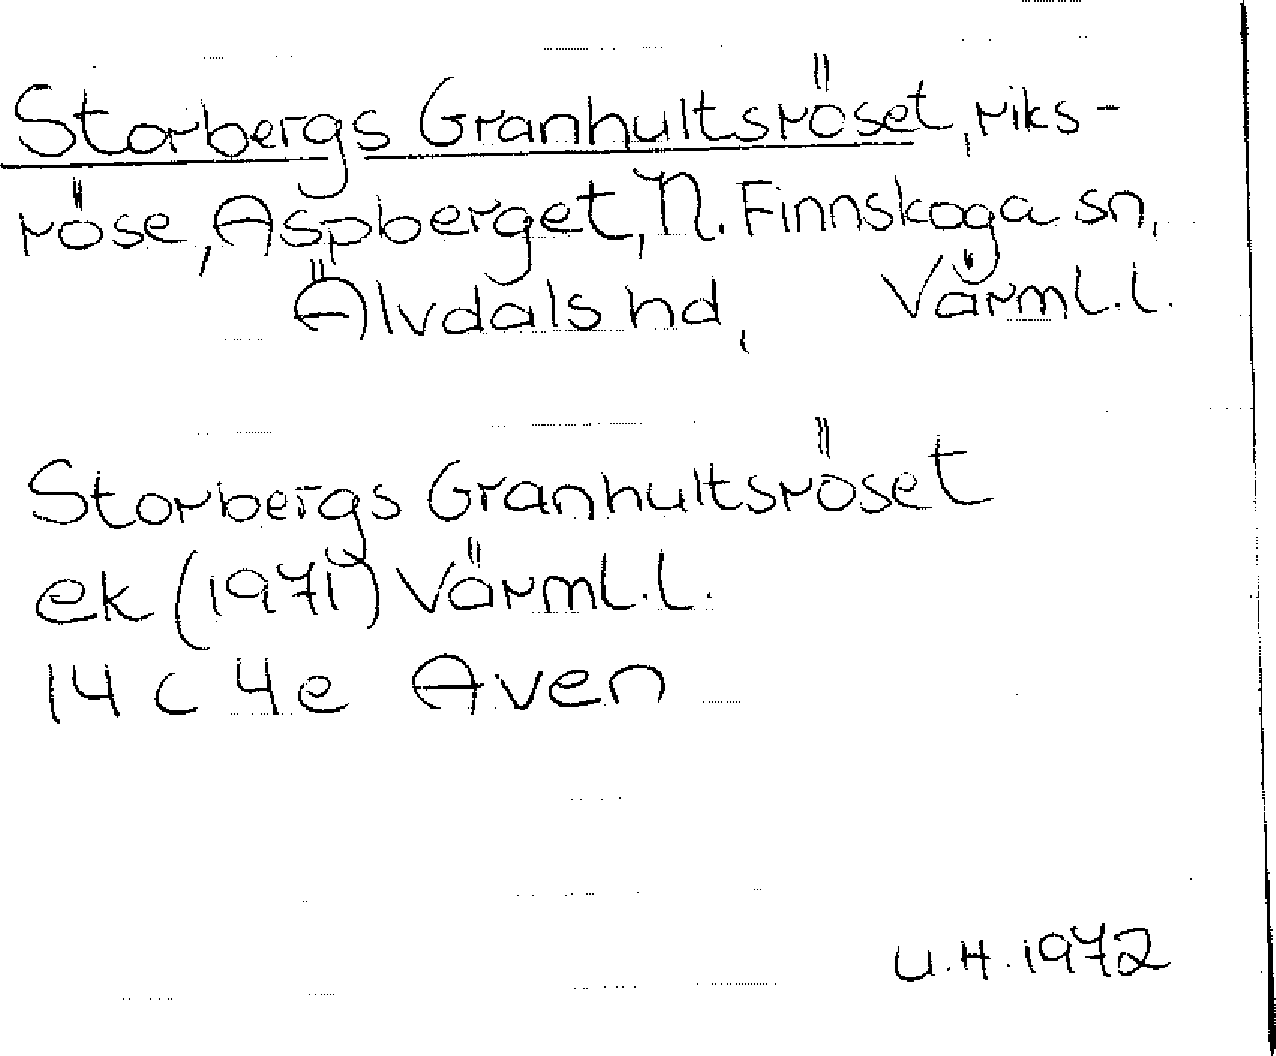 Storbergs Granhultsröset, riks-
röse, Aspberget, N. Finnskoga sn,
Älvdals hd, Värml.l.
Storbergs Granhultsröset
ek (1971) Värml.l.
14 c 4e Aven
U.H. 1972